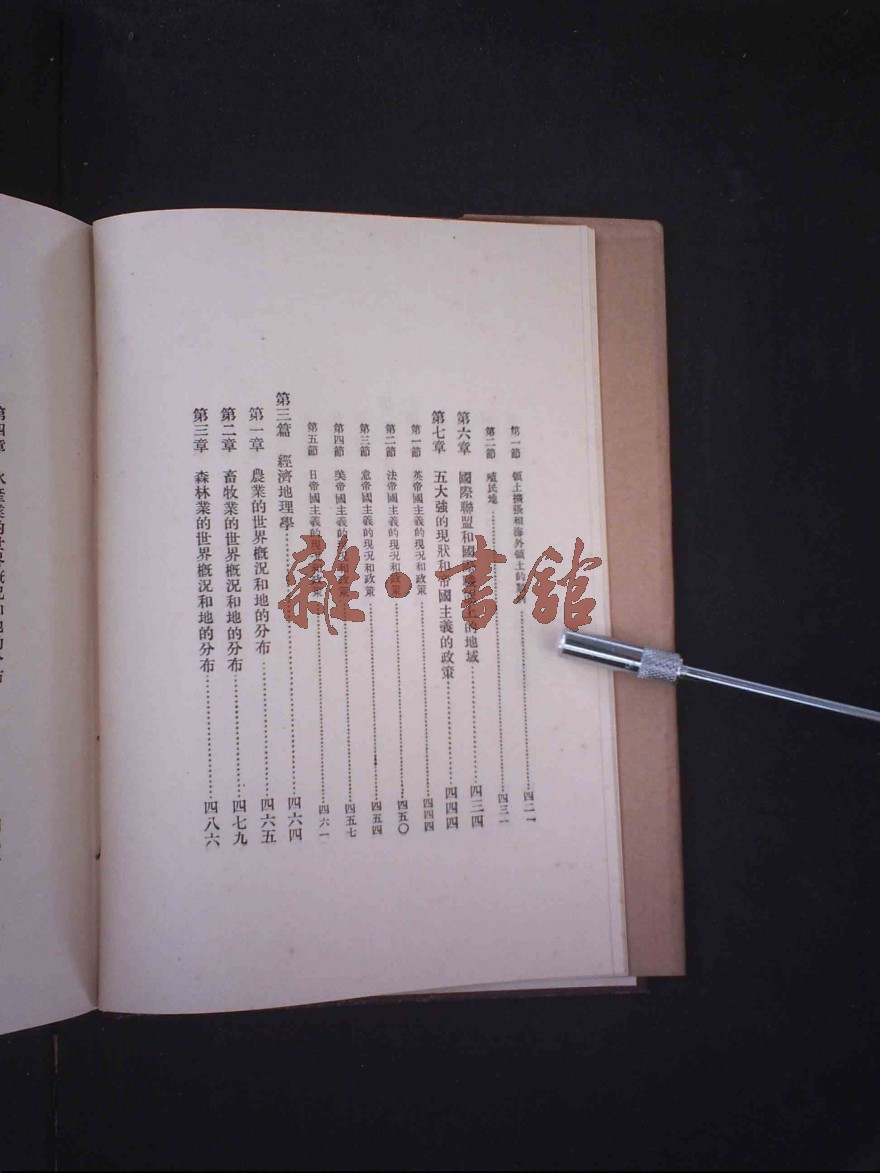 第一節 領土擴張和海外領土的…………四二一
第二節 殖民地…………四三一
第六章 國際聯盟和國際聯盟上的地域…………四三四
第七章 五大強的現狀和帝國主義的政策…………四四四
第一節 英帝國主義的現況和政策…………四四四
第二節 法帝國主義的現況和政策…………四五〇
第三節 意帝國主義的現況和政策…………四五四
第四節 美帝國主義的現況和政策…………四五七
第五節 日帝國主義的現況和政策…………四六一
第三篇 經濟地理學…………四六四
第一章 農業的世界概況和地的分布…………四六五
第二章 畜牧業的世界概況和地的分布…………四七九
第三章 森林業的世界概況和地的分布…………四八六
第四章 水產業的世界概況和地的分布
雜·書館